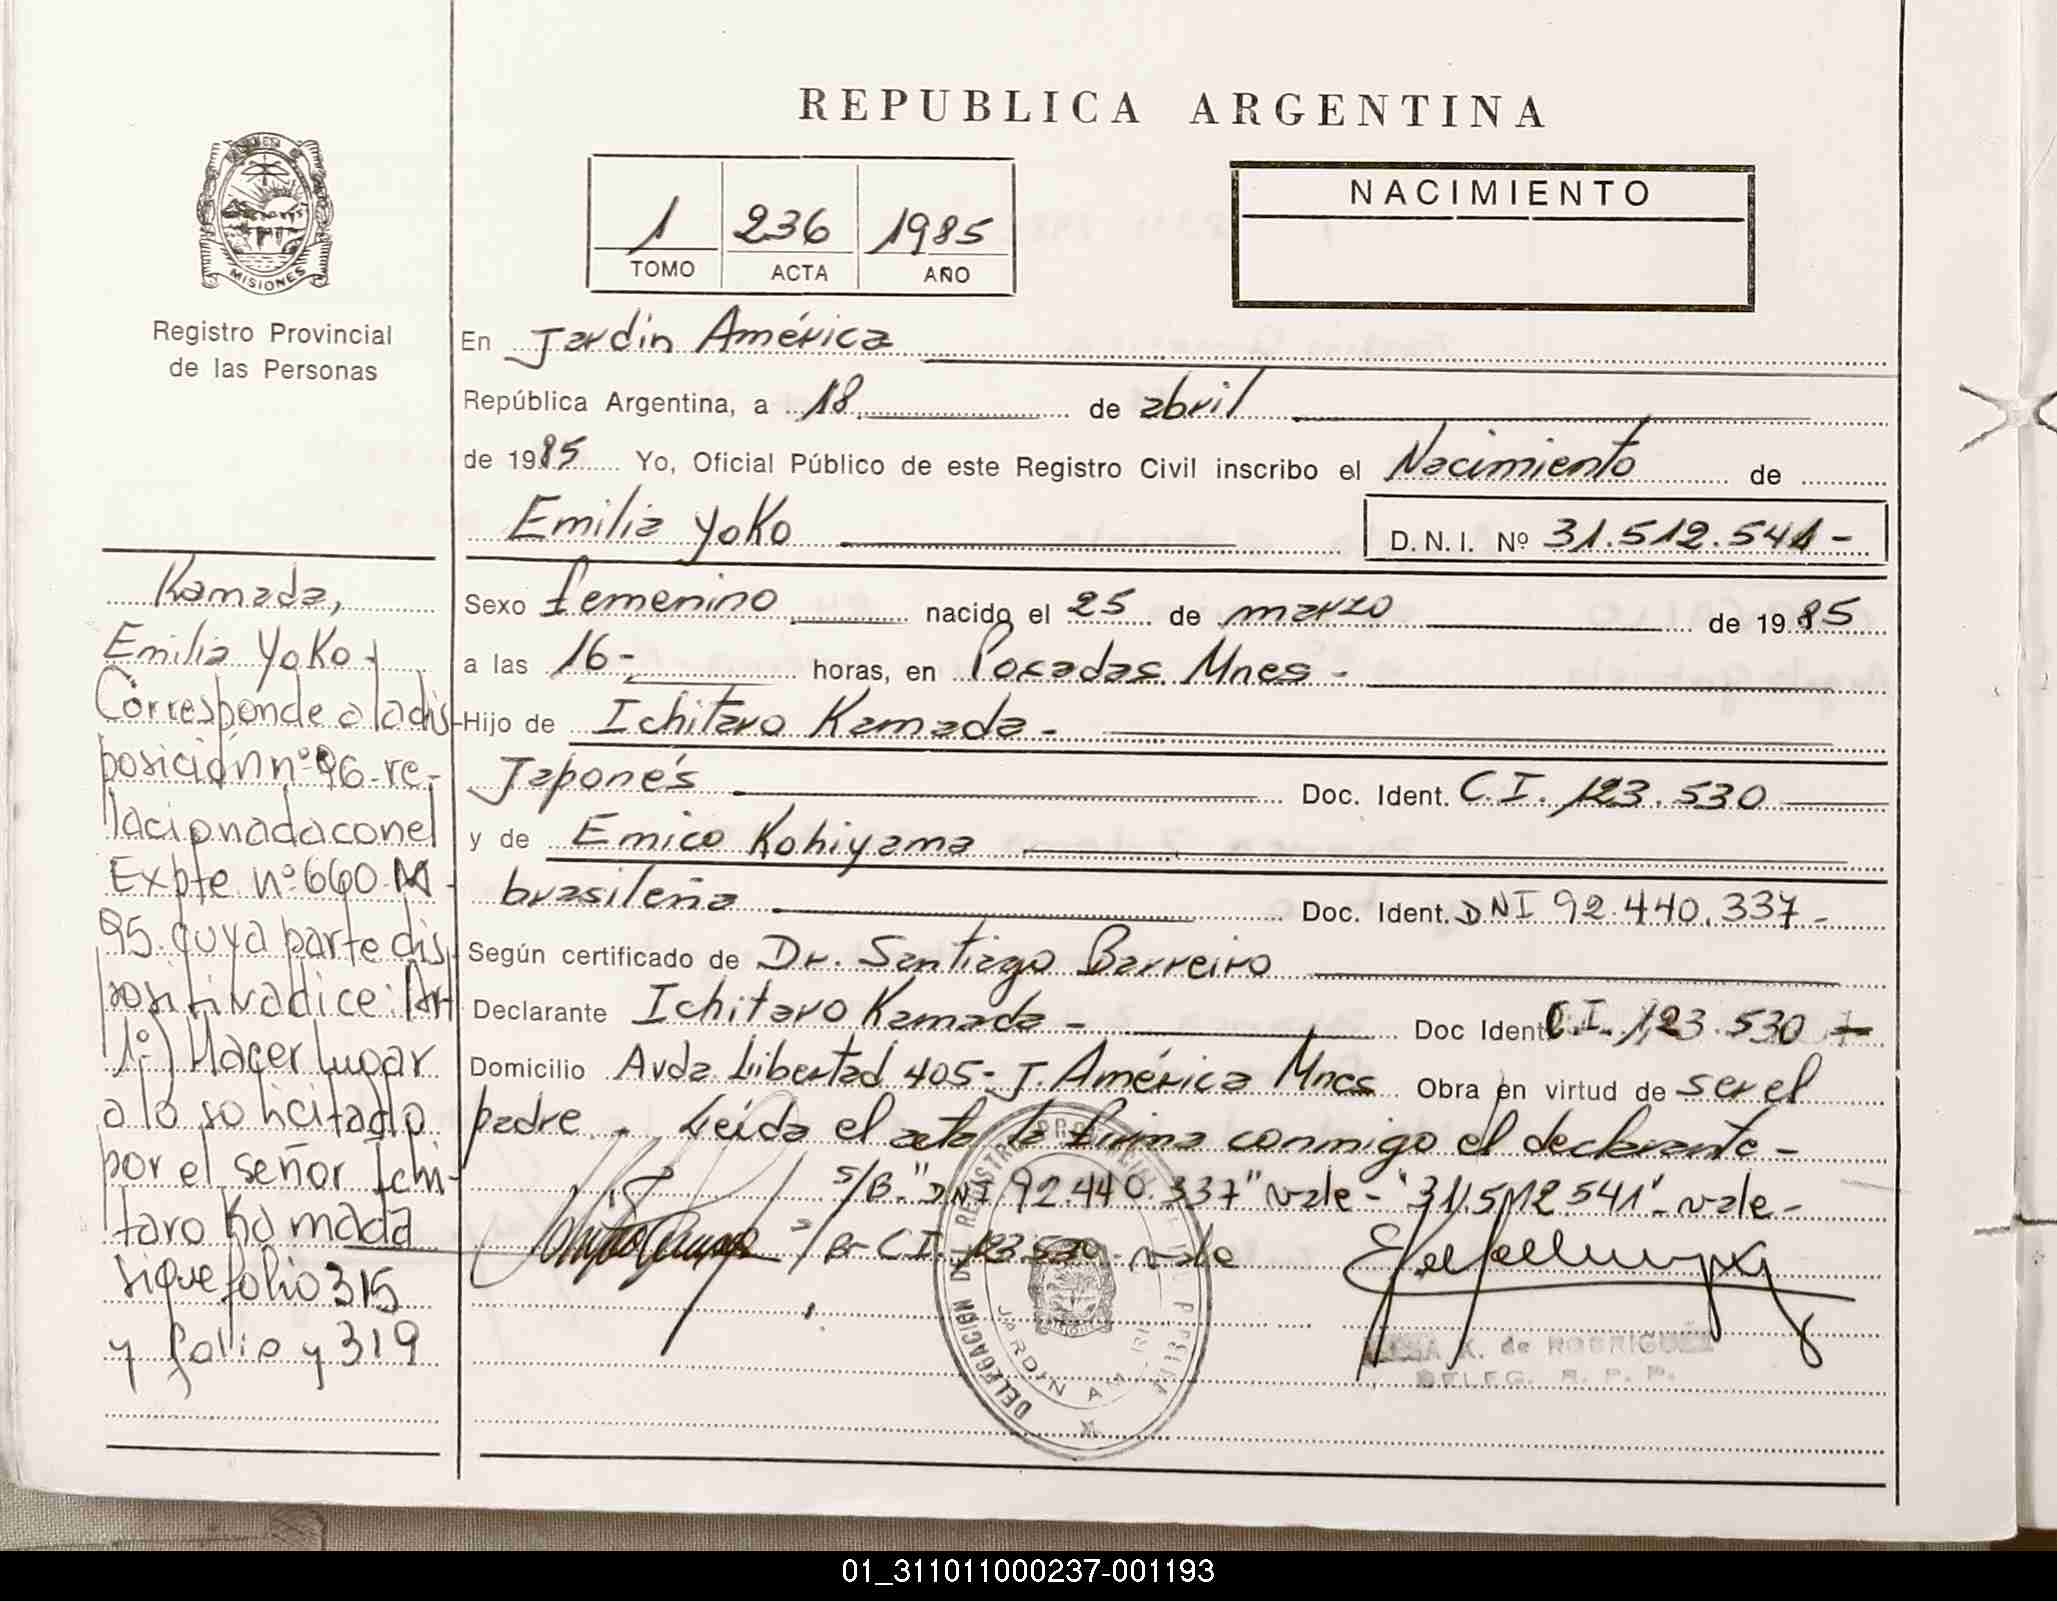 REPUBLICA ARGENTINA
MISIONES
Registro Provincial
de las Personas
1 236 1985
TOMO ACTA AÑO
NACIMIENTO
En Jardín América
República Argentina, a 18 de abril
de 1985 Yo, Oficial Público de este Registro Civil inscribo el Nacimiento de
Emilia Yoko D.N.I. Nº 31.512.541-
Sexo femenino nacido el 25 de marzo de 1985
a las 16- horas, en Posadas Mnes-
Hijo de Ichitaro Kamada-
Japonés Doc. Ident. C.I. 123.530
y de Emico Kohiyama
brasileña Doc. Ident. DNI 92.440.337-
Según certificado de Dr. Santiago Barreiro
Declarante Ichitaro Kamada- Doc Ident C.I. 123.530-
Domicilio Avda Libertad 405- J. América Mnes Obra en virtud de ser el
padre. Leída el acta la firma conmigo el declarante-
s/B. "DNI 92.440.337" vale- "31.512.541". vale-
C.I. 123.530- vale
DELEGACION DEL REGISTRO PROVINCIAL
JARDIN AM
MISIONES
de RODRIGUEZ
DELEG. R. P. P.
Kamada,
Emilia Yoko-
Corresponde a la dis-
posición nº 96-re-
lacionada con el
Expte nº 660-M-
95. cuya parte dis
positiva dice: Art
1º) Hacer lugar
a lo solicitado
por el señor Ichi-
taro Kamada
sigue folio 315
y folio y 319
01_311011000237-001193